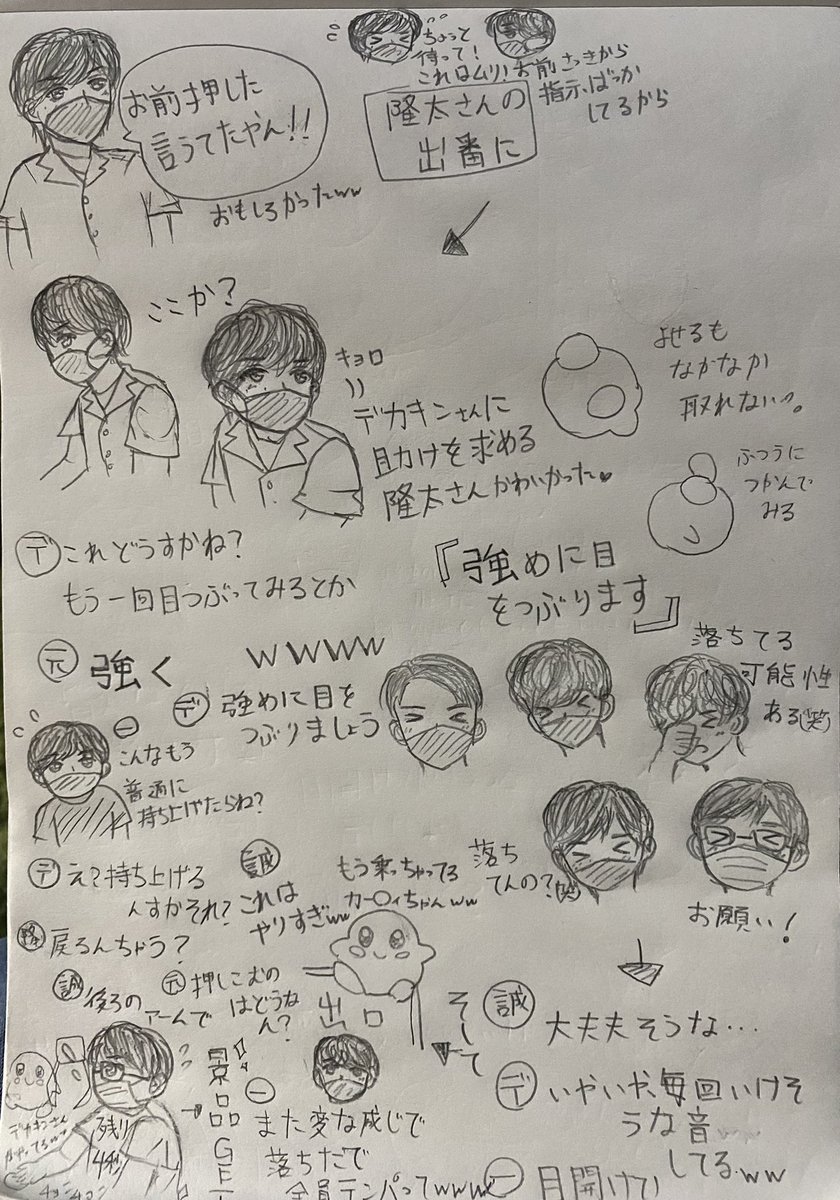 お前押した
言うてたやん!!
おもしろかったww
ちょっと
待って!
これはムリ!
お前さっきから
指示ばっか
してるから
隆太さんの
出番に
ここか?
キョロ
デカキンさんに
助けを求める
隆太さんかわいかった♥
よせるも
なかなか
取れない。
ふつうに
つかんで
みる
デ これどうすかね?
もう一回目つぶってみるとか
『強めに目
をつぶります』
元 強く
wwww
デ 強めに目を
つぶりましょう
落ちてる
可能性
ある(笑)
一 こんなもう
普通に
持ち上げたらね?
デ え?持ち上げる
んすかそれ?
誠 これは
やりすぎww
もう乗っちゃってる
カービィちゃんww
落ち
てんの?(笑)
お願い!
隆 戻るんちゃう?
誠 後ろの
アームで
元 押しこむの
はどうな
ん?
出口
そして
誠 大丈夫そうな…
デ いやいや、毎回いけそ
うな音
してるww
一 目開けて!
デカキンさん
残り
4秒
景品GET
一 また変な感じで
落ちたで
全員テンパってwww